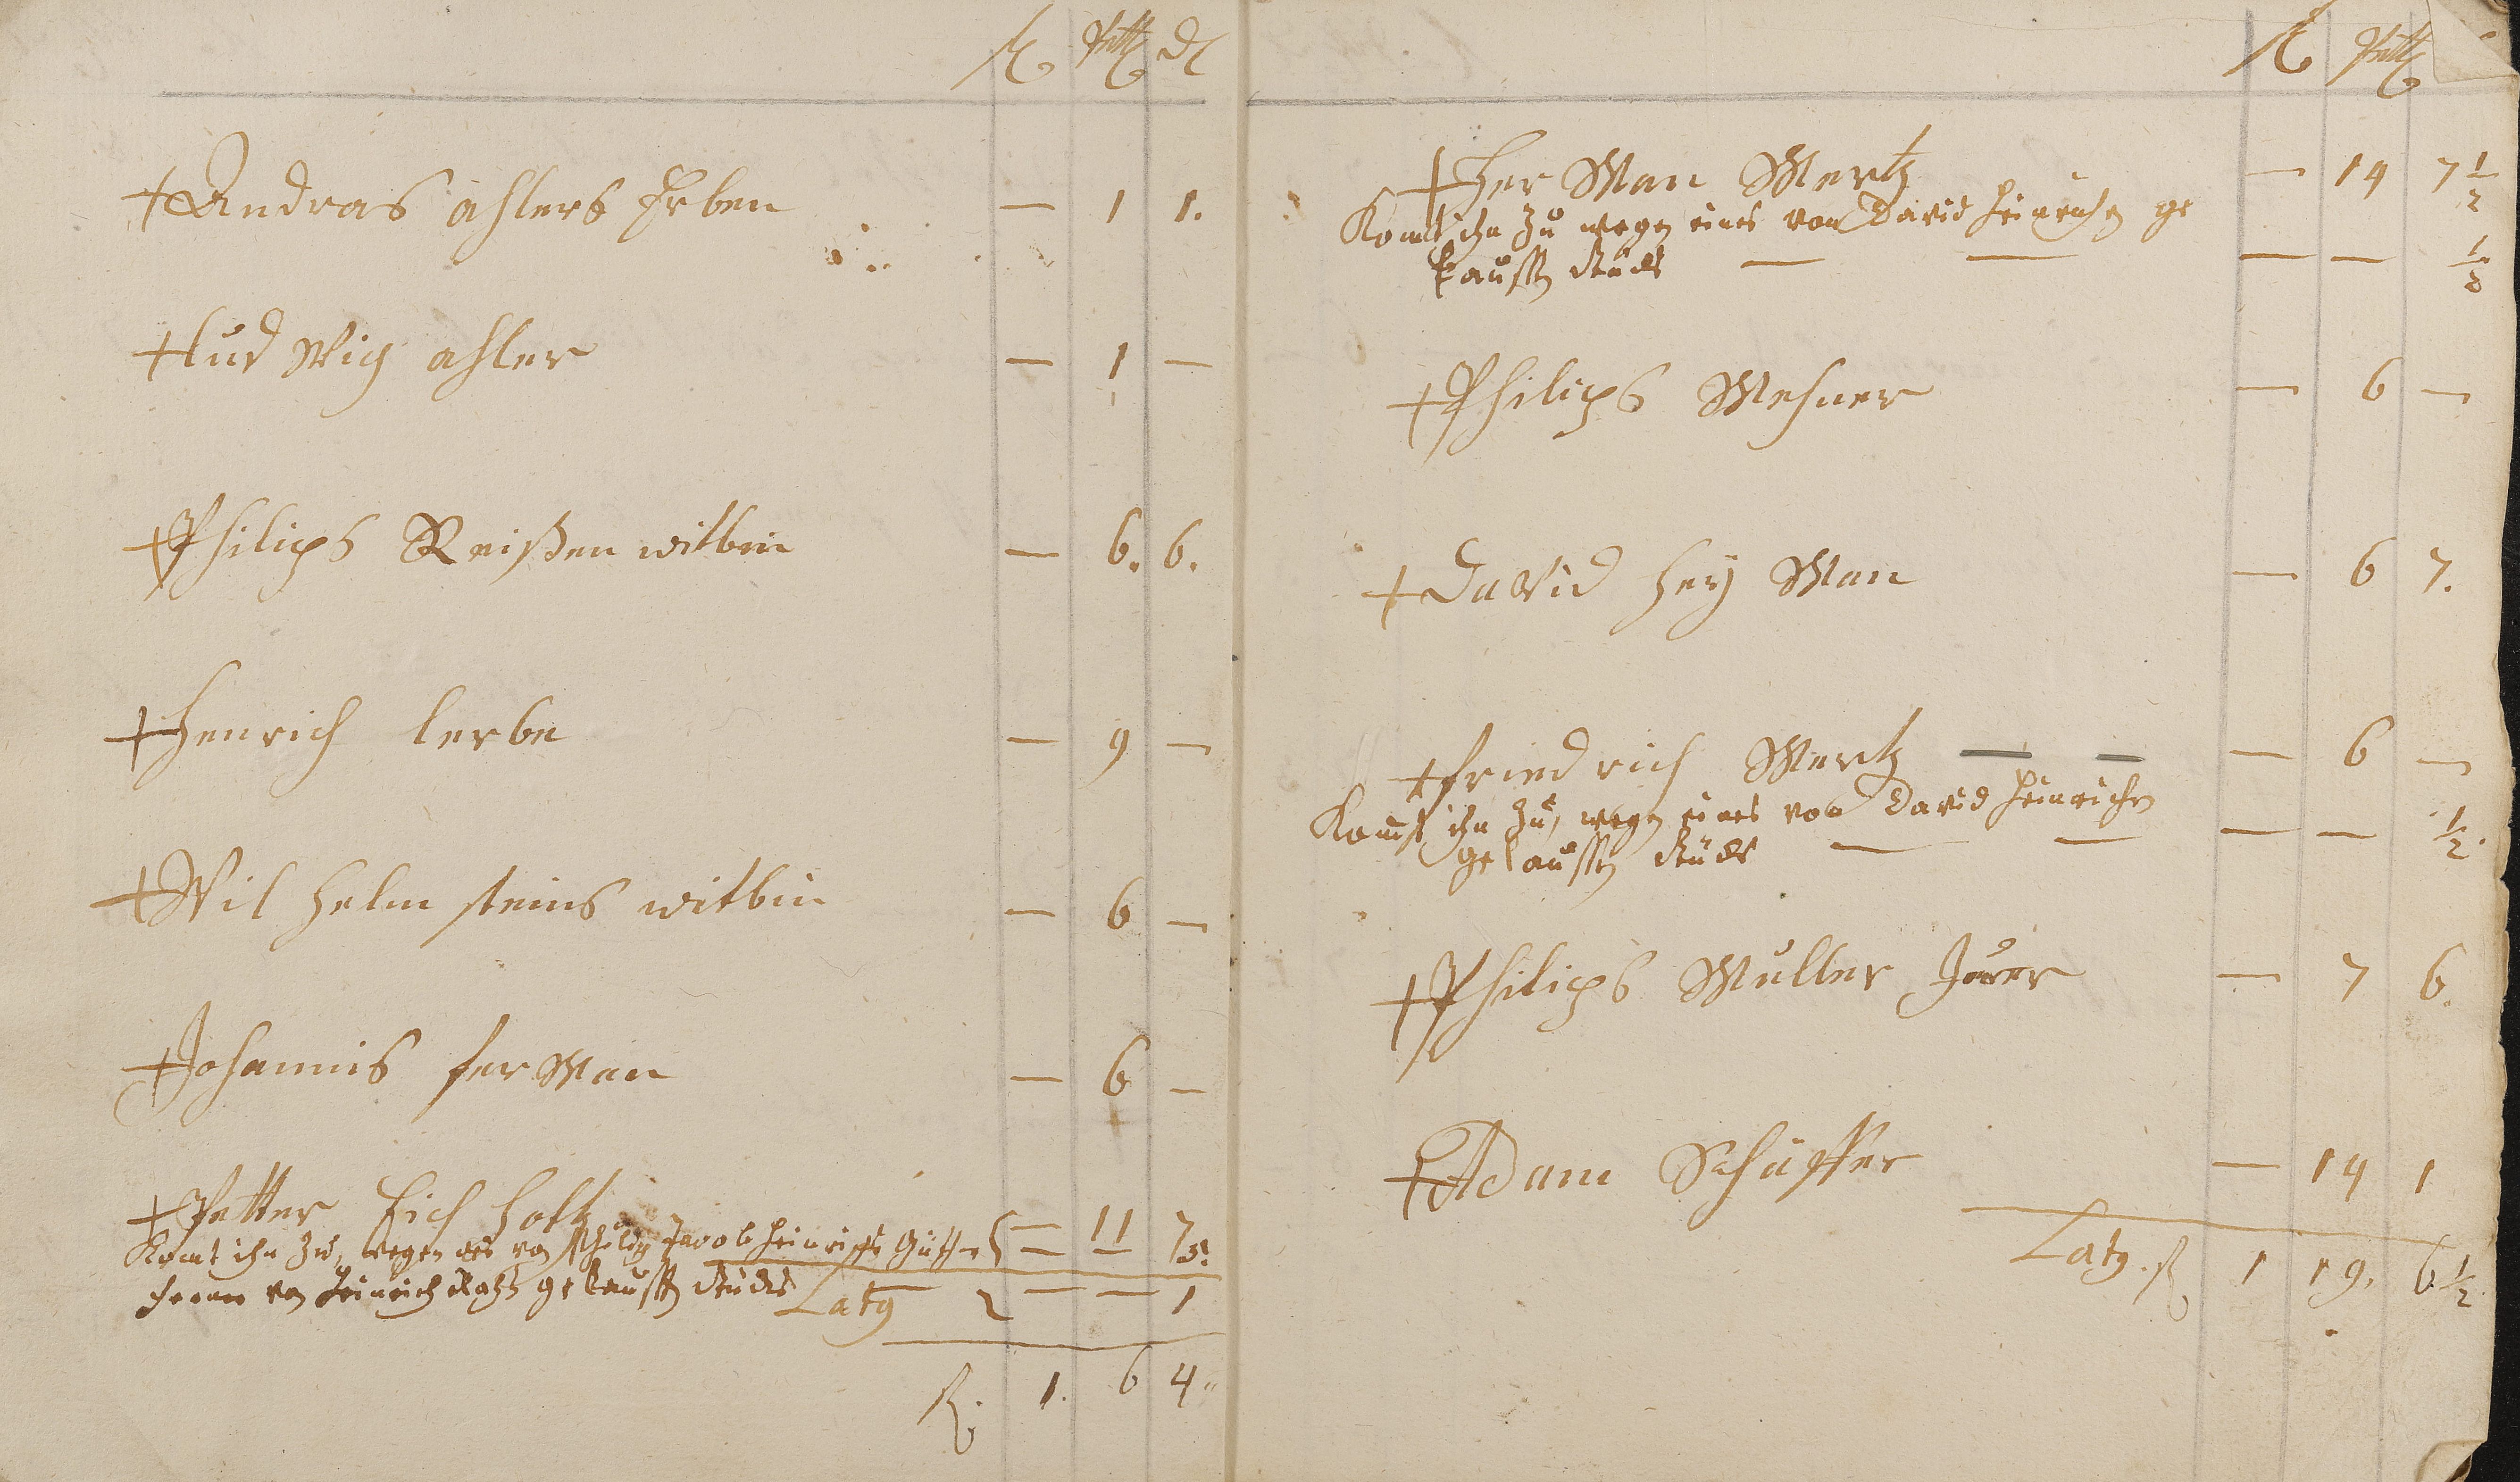 fl btz d
+ Andras ahlers Erben — 1 1.
+ lud Wig ahler — 1 —
+ Philips Reißen witbin — 6. 6.
+ Henrich lerbe — 9 —
+ Wil helm steins witbin — 6 —
+ Johannis ferman — 6 —
+ Petter Eich holtz — 11 7
Komt ihn zu, wegen des von Jacob heinrichs
von heinrich gekaufften stücks — — 1
Latg
fl. 1. 6 4
fl btz
+ Her Man Mertz — 14 7 1/2
Komt ihn zu wegen eines von David heinrichen ge
kaufften stücks — — — — 1/2
+ Philips Messner — 6 —
+ DaVid Hey Man — 6 7.
+ friedrich Mertz — — — 6 —
Komt ihn zu, wegen eines von David heinrichen
gekaufften stücks — — — — 1/2.
+ Philips Muller — 7 6.
+ Adam Schäffer — 14 1
Latg. fl 1 19. 6 1/2